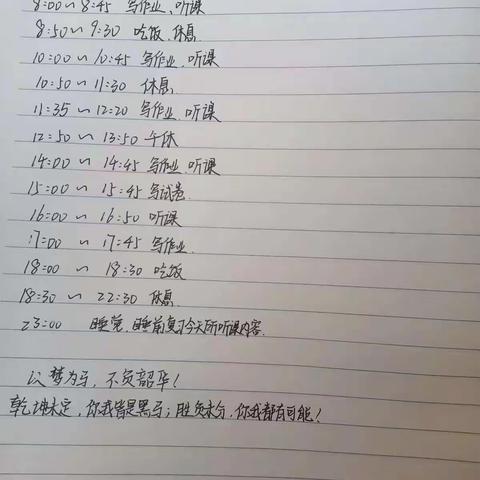 8:00～8:45 写作业、听课
8:50～9:30 吃饭、休息
10:00～10:45 写作业、听课
10:50～11:30 休息
11:35～12:20 写作业、听课
12:50～13:50 午休
14:00～14:45 写作业、听课
15:00～15:45 写试卷
16:00～16:50 听课
17:00～17:45 写作业
18:00～18:30 吃饭
18:30～22:30 休息
23:00 睡觉，睡前复习今天所听课内容.
以梦为马，不负韶华！
乾坤未定，你我皆是黑马；胜负未分，你我都有可能！